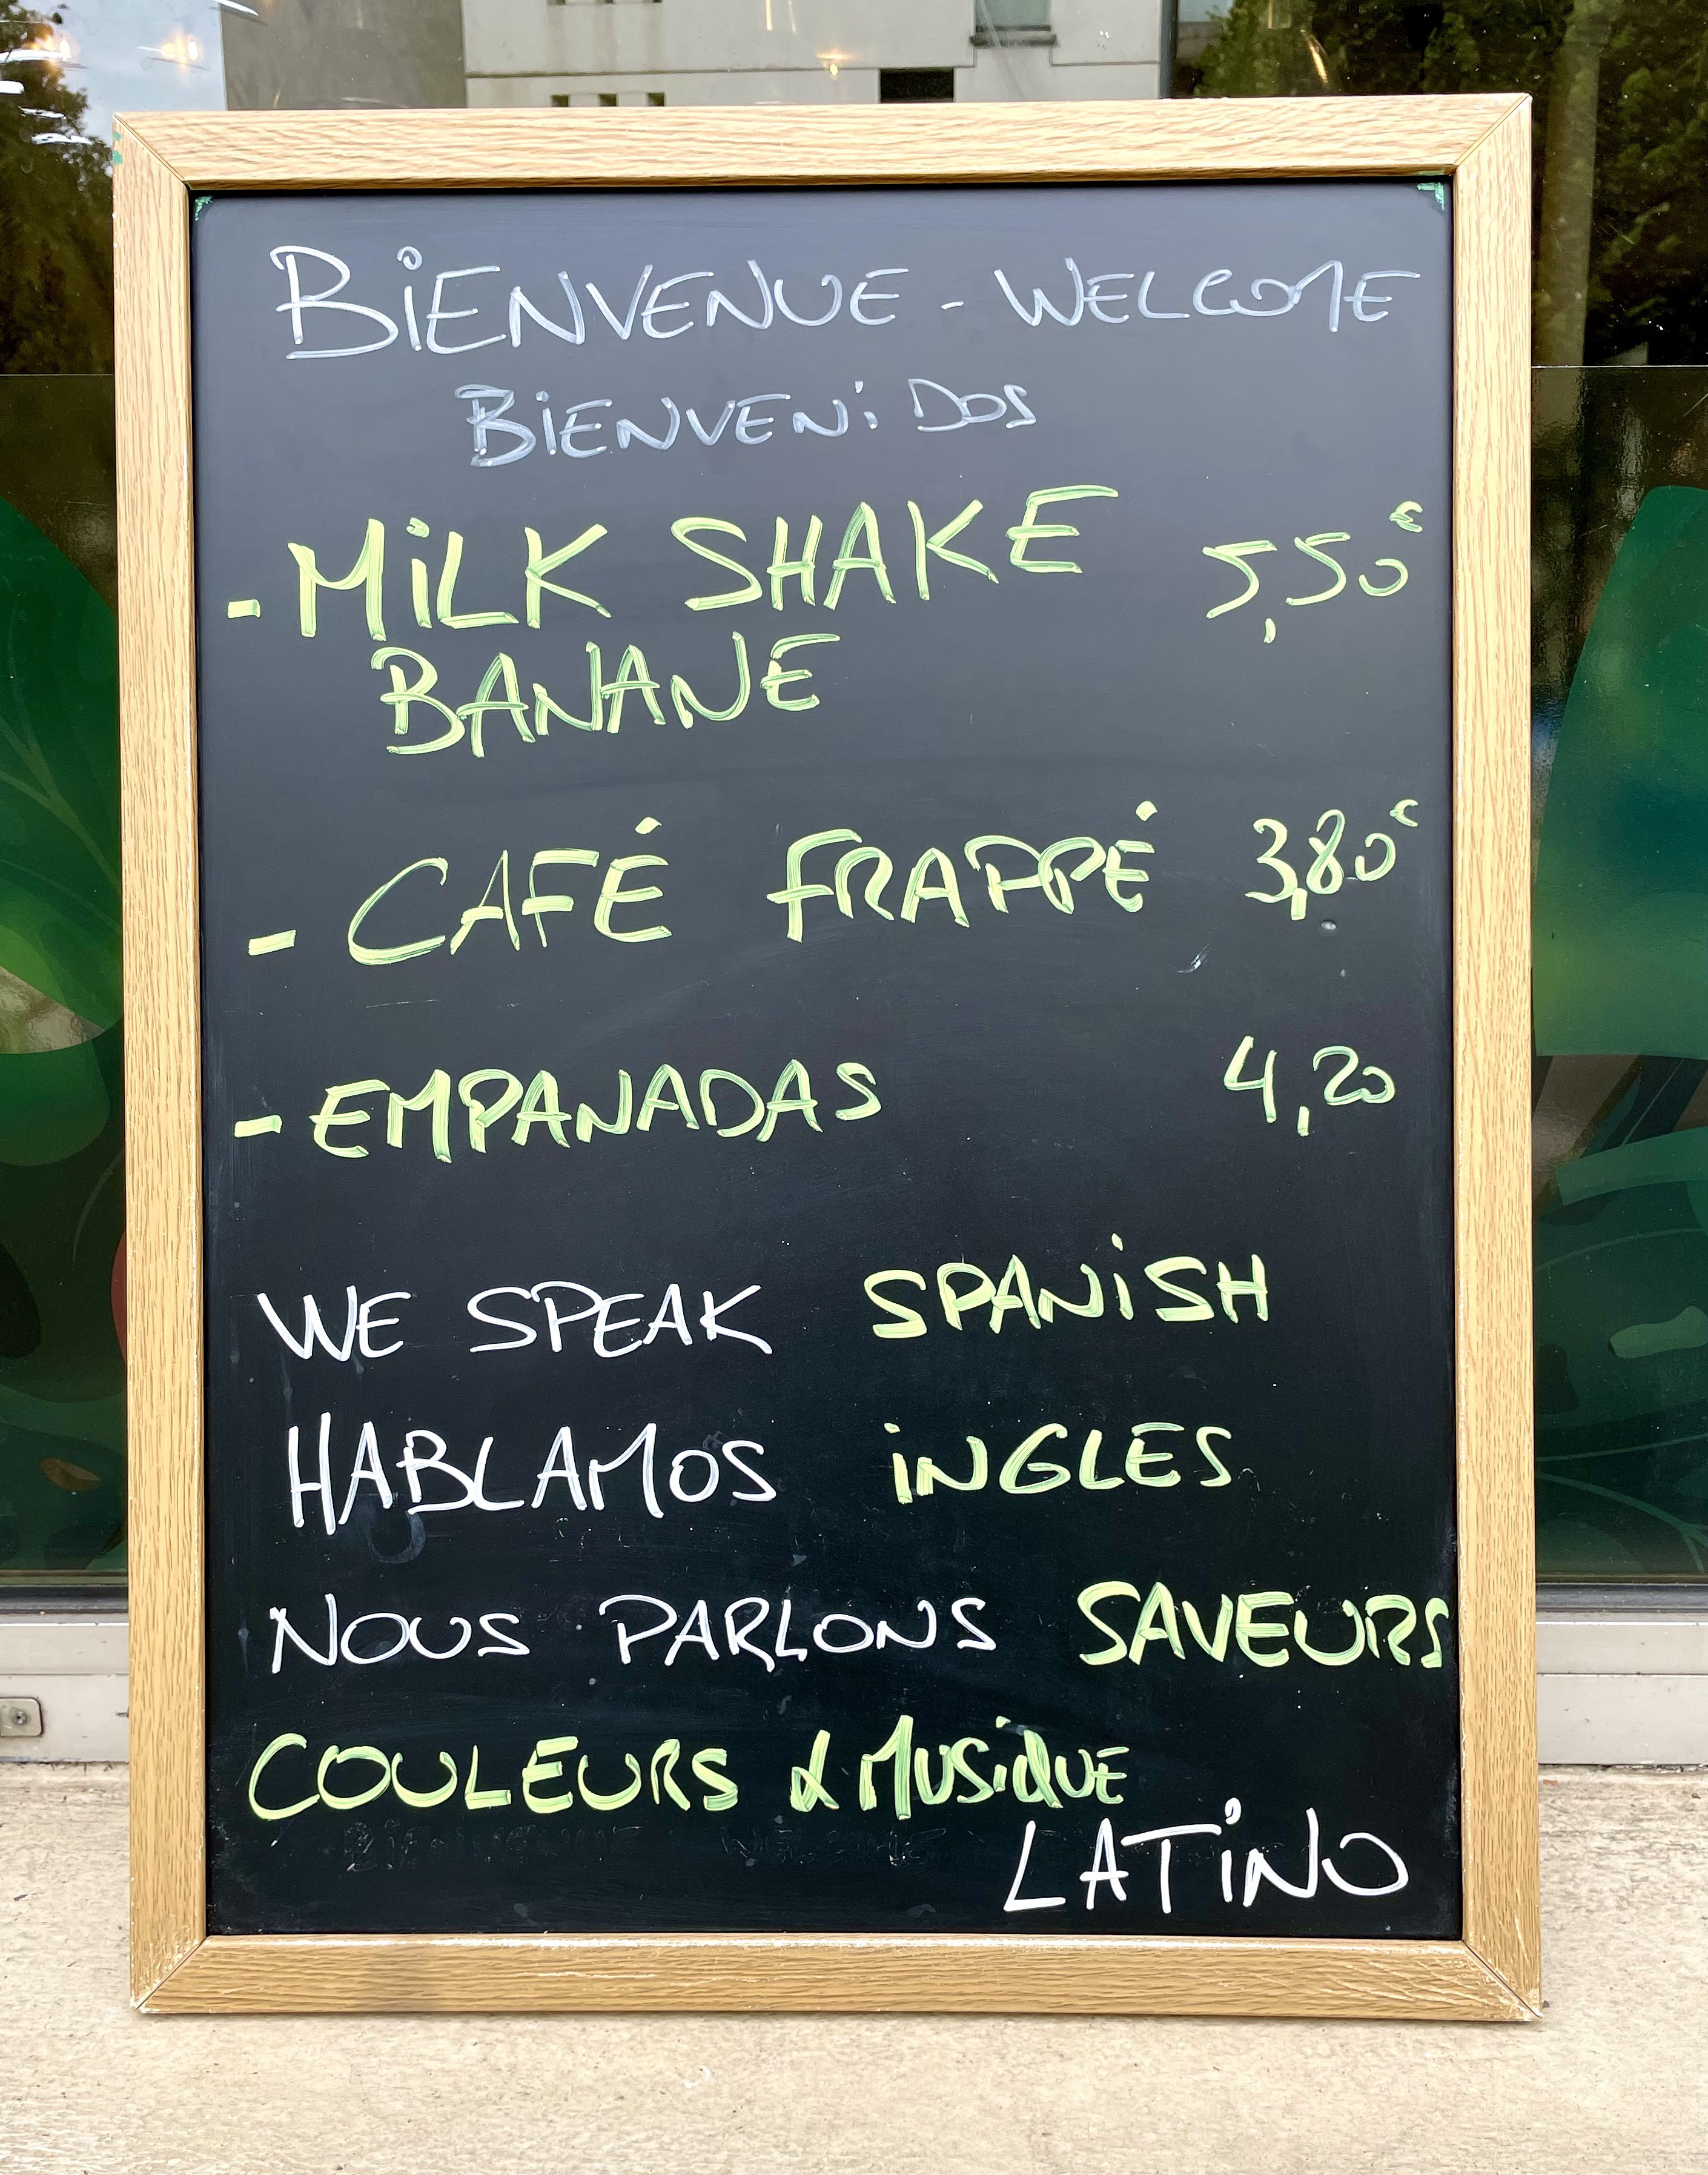 BiENVENUE - WELCOME
BiENVENiDOS
- MiLK SHAKE 5,50€
BANANE
- CAFÉ FRAPPÉ 3,80€
- EMPANADAS 4,20
WE SPEAK SPANiSH
HABLAMOS iNGLES
NOUS PARLONS SAVEURS
COULEURS & MUSiQUE
LATiNO